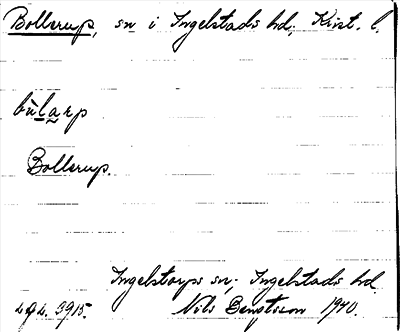 Bollerup, sn i Ingelstads hd; Krist. l.
bùlarp
Bollerup.
Ingelstorps sn; Ingelstads hd
3915. Nils Bengtsson 1940.